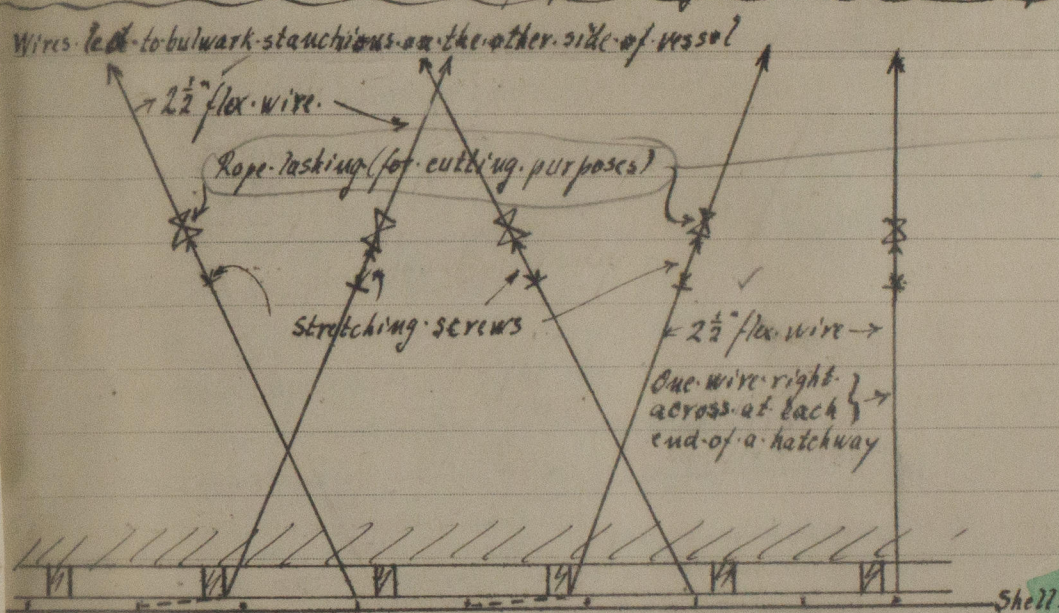 Wires led to bulwark stanchions on the other side of vessel
2½" flex. wire.
Rope lashing (for cutting purposes)
Stretching screws
2½" flex. wire
One wire right
across at each
end of a hatchway
Shell